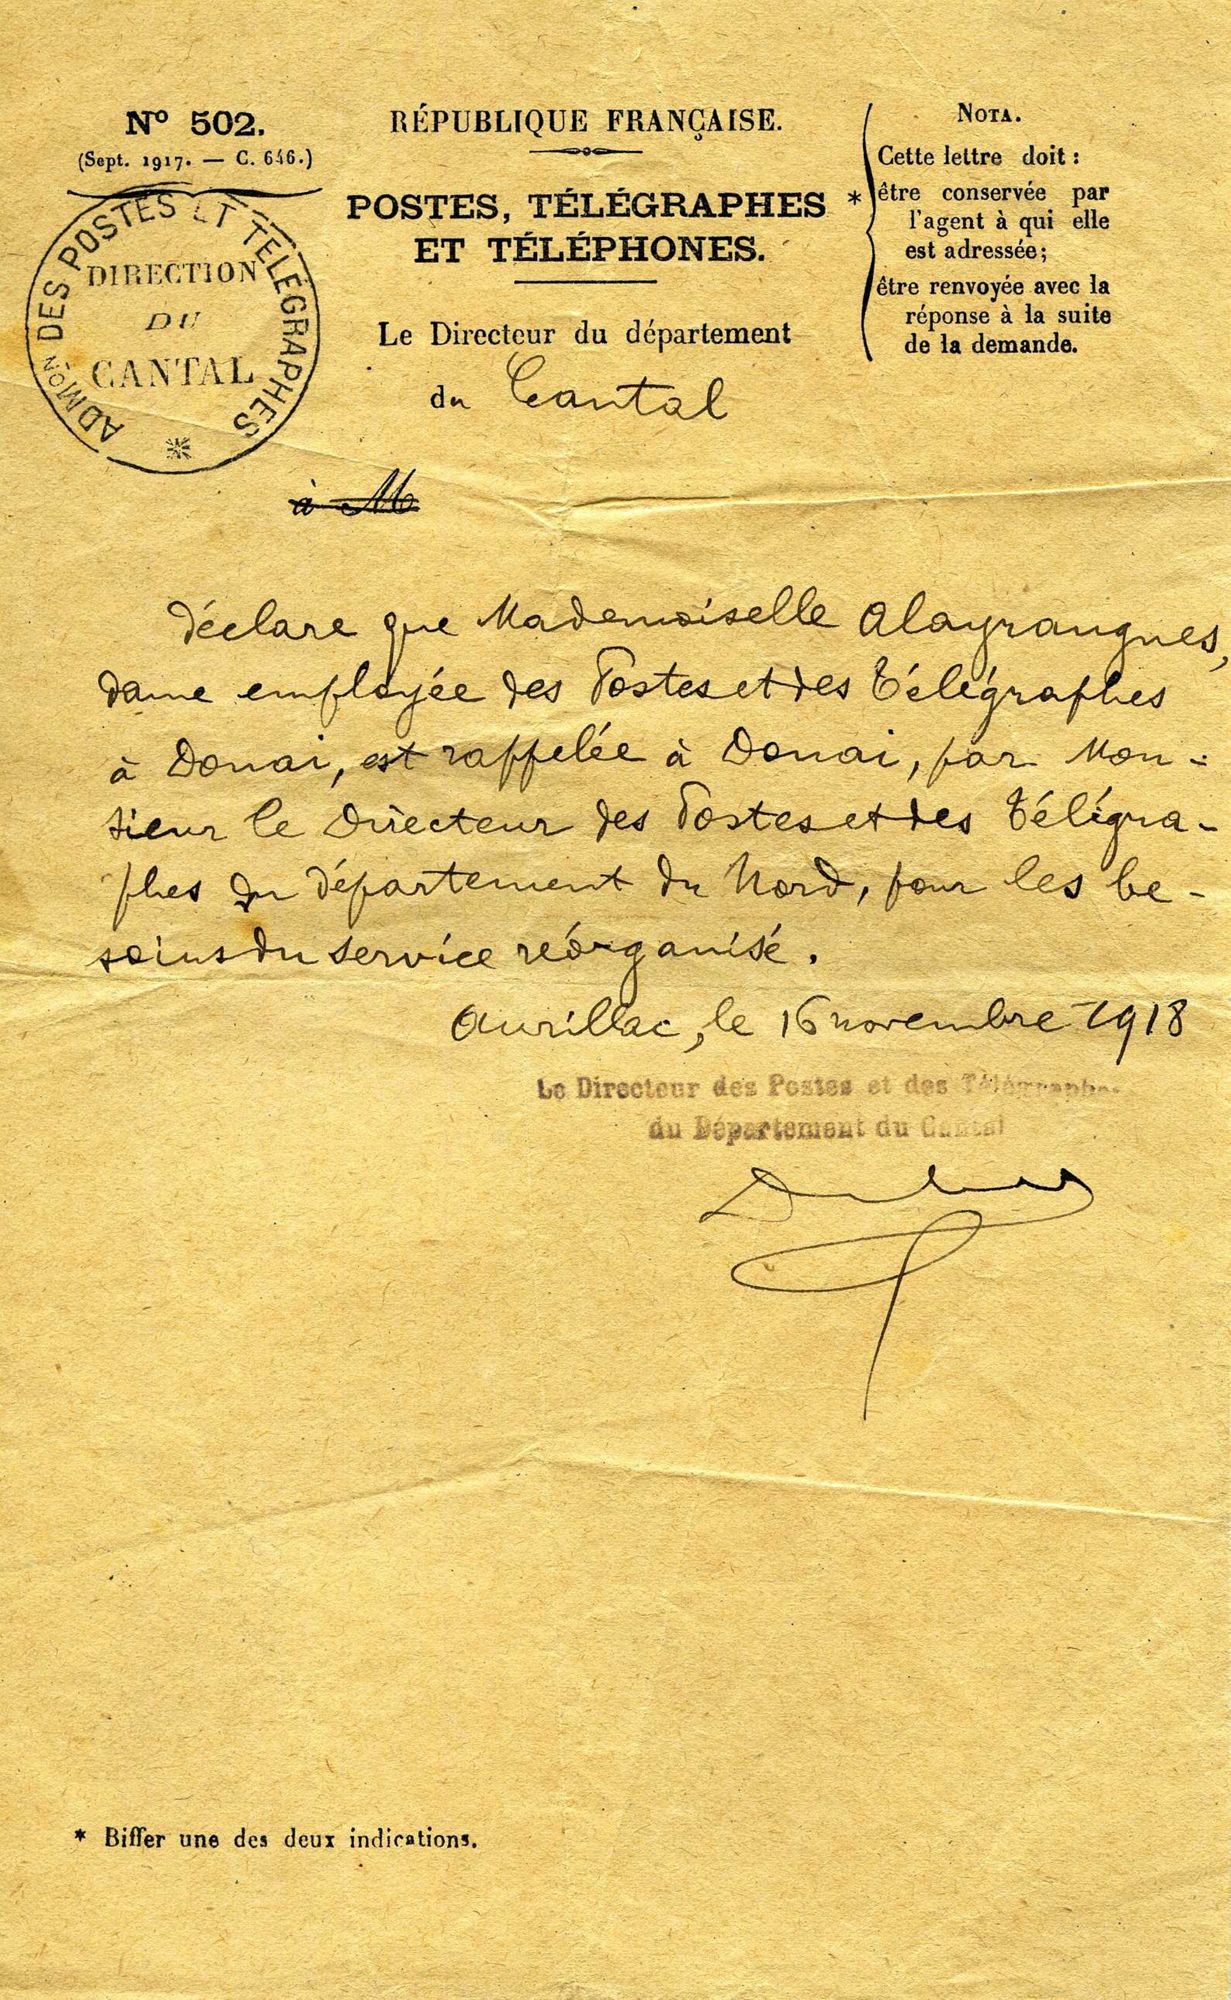 Nº 502.
(Sept. 1917. — C. 646.)
ADMON DES POSTES ET TELEGRAPHES
DIRECTION
DU
CANTAL
RÉPUBLIQUE FRANÇAISE.
POSTES, TÉLÉGRAPHES
ET TÉLÉPHONES.
Le Directeur du département
du Cantal
*
NOTA.
Cette lettre doit :
être conservée par
l'agent à qui elle
est adressée;
être renvoyée avec la
réponse à la suite
de la demande.
à M
déclare que Mademoiselle Alayrangues,
dame employée des Postes et des Télégraphes
à Douai, est rappelée à Douai, par Mon-
sieur le Directeur des Postes et des Télégra-
phes du département du Nord, pour les be-
soins du service réorganisé.
Aurillac, le 16 novembre 1918
Le Directeur des Postes et des Télégraphes
du Département du Cantal
* Biffer une des deux indications.